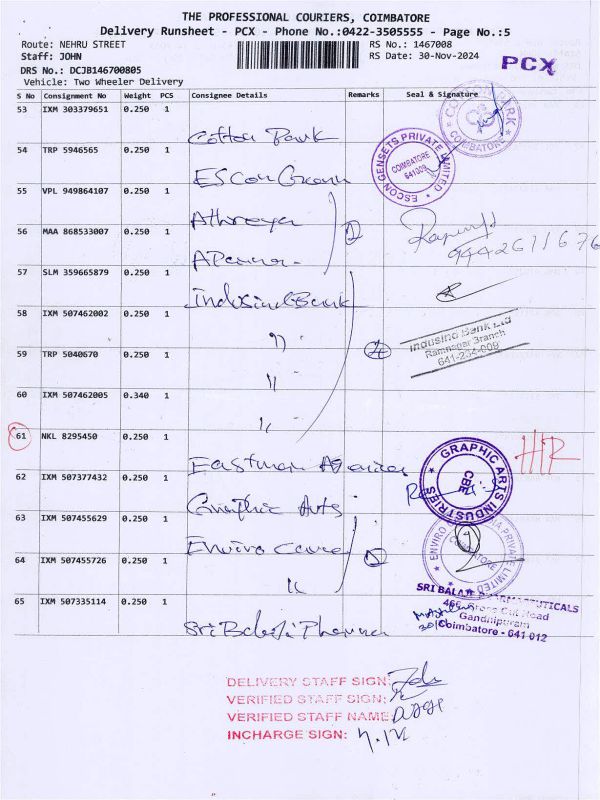 THE PROFESSIONAL COURIERS, COIMBATORE
Delivery Runsheet - PCX - Phone No.:0422-3505555 - Page No.:5
Route: NEHRU STREET
RS No.: 1467008
Staff: JOHN
RS Date: 30-Nov-2024
PCX
DRS No.: DCJB146700805
Vehicle: Two Wheeler Delivery
S No Consignment No Weight PCS Consignee Details Remarks Seal & Signature
53 IXM 303379651 0.250 1
COIMBATORE
54 TRP 5946565 0.250 1
ESCON GENSETS PRIVATE LIMITED
COIMBATORE
641009
55 VPL 949864107 0.250 1
56 MAA 868533007 0.250 1
2
9442611676
57 SLM 359665879 0.250 1
IndusindBank
58 IXM 507462002 0.250 1
"
Indusind Bank Ltd
Ramnagar Branch
641-234-009
59 TRP 5040670 0.250 1
4
"
60 IXM 507462005 0.340 1
"
61 NKL 8295450 0.250 1
Eastman Agencies
GRAPHIC ARTS INDUSTRIES
CBE
62 IXM 507377432 0.250 1
Graphic Arts
63 IXM 507455629 0.250 1
Enviro Care
2
64 IXM 507455726 0.250 1
"
65 IXM 507335114 0.250 1
Sri Balaji Pharma
Gandhipuram
Coimbatore - 641 012
DELIVERY STAFF SIGN:
VERIFIED STAFF SIGN:
VERIFIED STAFF NAME:
INCHARGE SIGN: